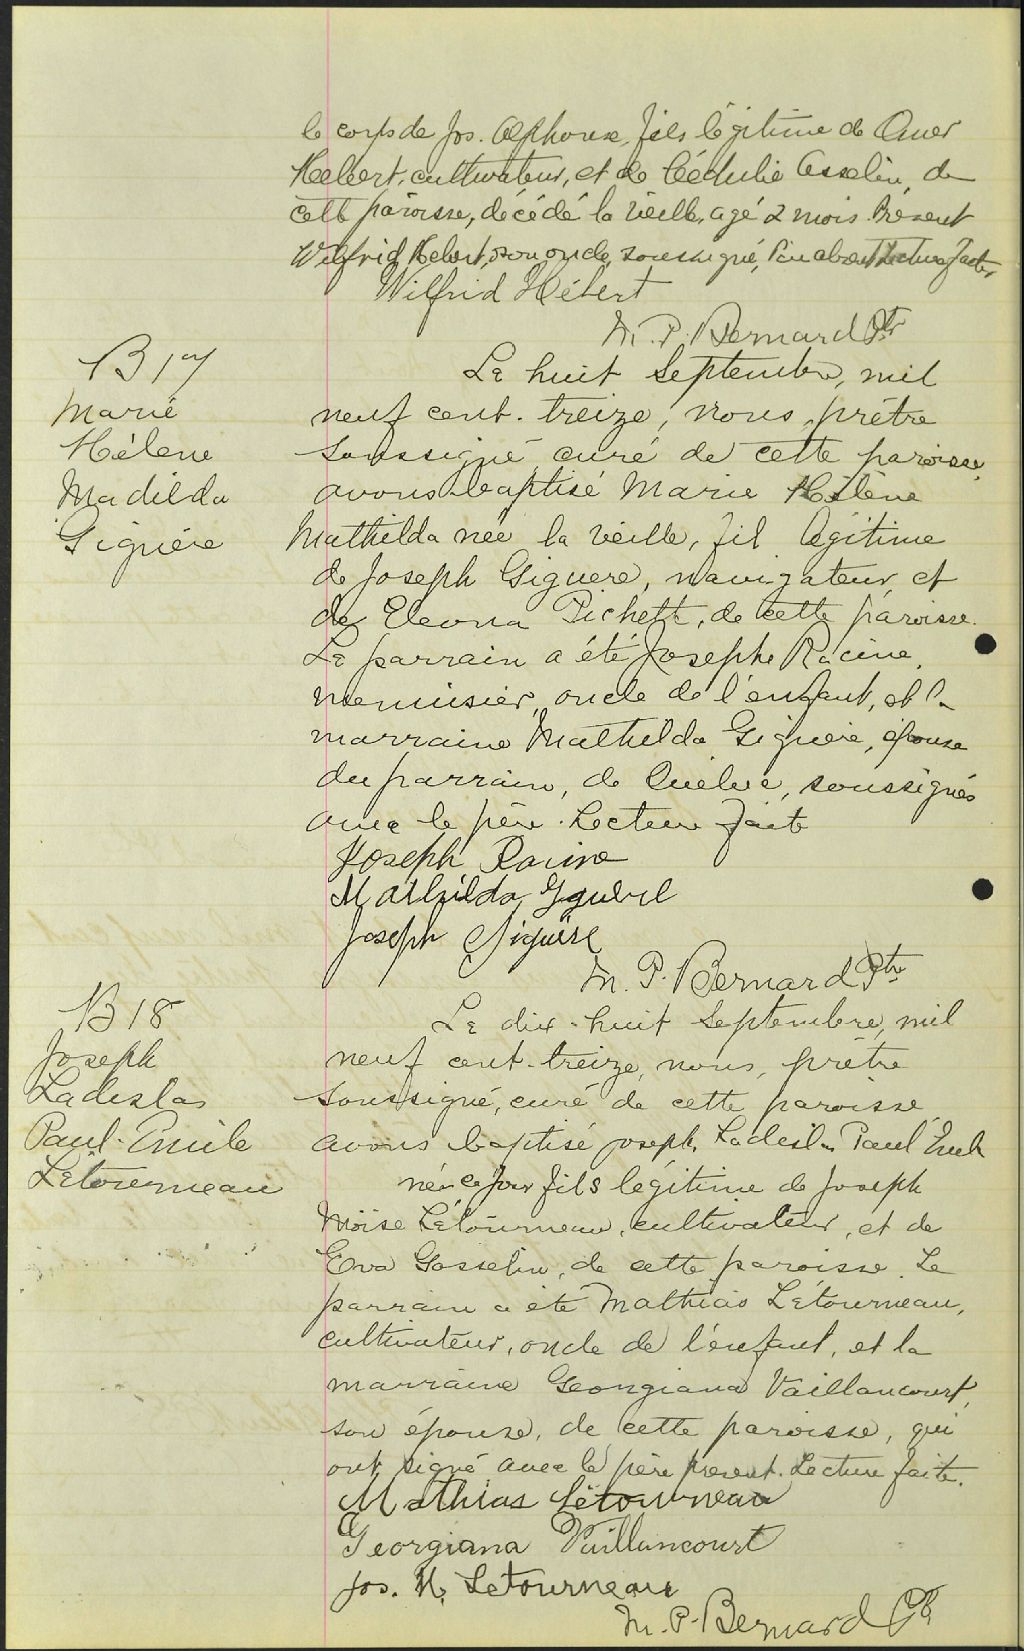 le corps de Jos. Alphonse, fils légitime de Omer
Hebert, cultivateur, et de Cédulie Asselin, de
cette paroisse, décédé la veille, agé 2 mois. Présent
Wilfrid Hebert, son oncle, soussigné, Lecture faite,
Wilfrid Hébert
M. P. Bernard Ptr
B 17
Marie
Hélène
Madilda
Giguère
Le huit Septembre, mil
neuf cent-treize, nous, prêtre
soussigné curé de cette paroisse,
avons baptisé Marie Hélène
Mathilda née la veille, fil légitime
de Joseph Giguere, navigateur, et
de Eleona Pichett, de cette paroisse.
Le parrain a été Joseph Racine,
menuisier, oncle de l'enfant, et la
marraine Mathilda Giguère, épouse
du parrain, de Québec, soussignés
avec le père. Lecture faite
Joseph Racine
Mathilda
Joseph Giguère
M. P. Bernard Ptr
B 18
Joseph
Ladislas
Paul-Emile
Létourneau
Le dix-huit Septembre, mil
neuf cent-treize, nous, prêtre
soussigné, curé de cette paroisse,
avons baptisé Joseph, Ladislas Paul Emile
né ce jour fils légitime de Joseph
Moïse Létourneau, cultivateur, et de
Eva Gosselin, de cette paroisse. Le
parrain a été Mathias Létourneau,
cultivateur, oncle de l'enfant, et la
marraine Georgiana Vaillancourt,
son épouse, de cette paroisse, qui
ont signé avec le père présent. Lecture faite.
Mathias Létourneau
Georgiana Vaillancourt
Jos. M. Letourneau
M. P. Bernard Ptr